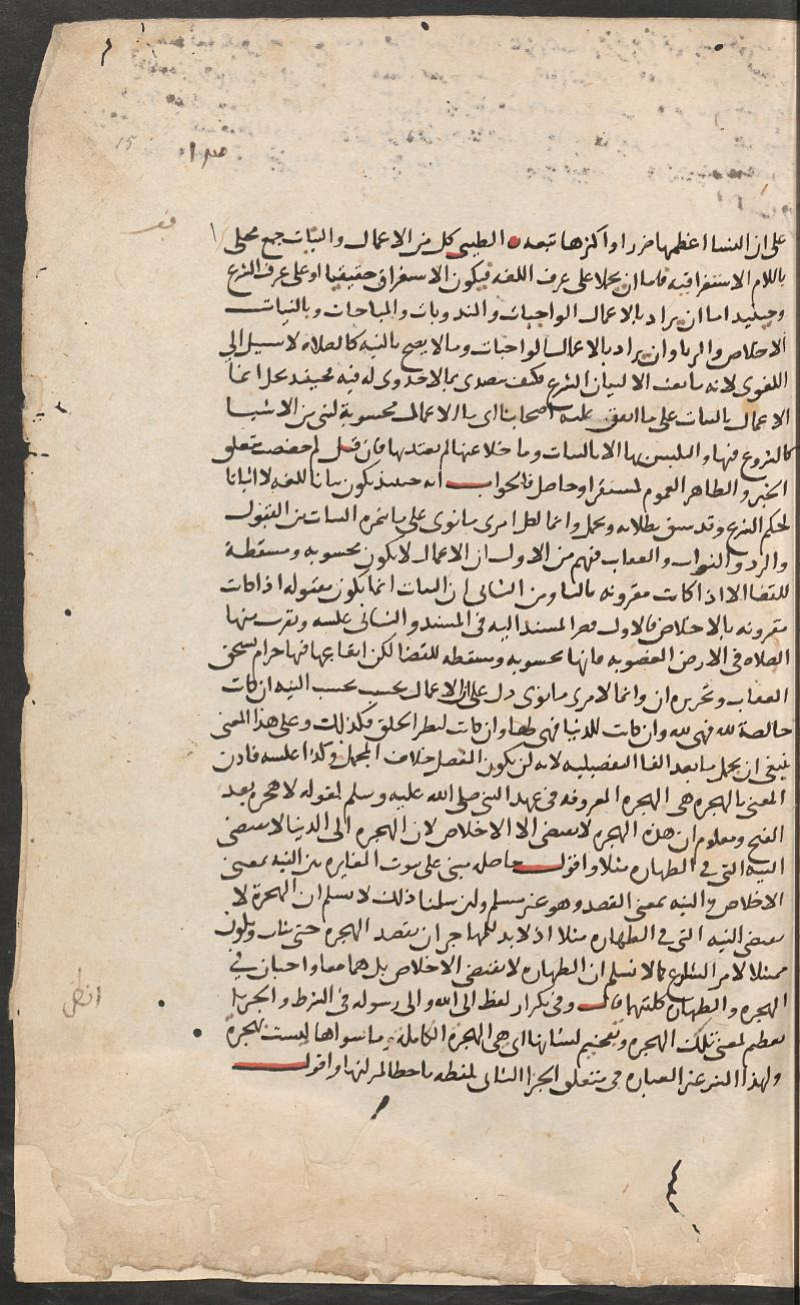 على ان النسا اعظمها ضررا واكثرها تبعه الطيبى كل من الاعمال والنيات جمع محلى
باللام الاستغراقيه فاما ان يحملا على عرف اللغه فيكون الاستغراق حقيقيا او على عرف الشرع
وحينيذ اما ان يراد بالاعمال الواجبات والمندوبات والمباحات وبالنيات
الاخلاص والريا وان يراد بالاعمال الواجبات ومالا يصح بالنيه كالصلاه لا سبيل الى
اللغوى لانه ما بعث الا لبيان الشرع فكيف يتصدى بما لا جدوى له فيه فحينئذ يحل انما
الاعمال بالنيات على ما اتفق عليه اصحابنا اى ما الاعمال محسوبة لشى من الاشيا
كالشروع فيها والتلبس بها الا بالنيات وما خلا عنها لم يعتد بها فان قيل لم خصصت متعلق
الخبر والظاهر العموم لمستقر او حاصل فالجواب انه حينئذ يكون بيانا للغه لا اثباتا
لحكم الشرع وقد سبق بطلانه ويحمل وانما لكل امرى مانوى على ما تثمره النيات من القبول
والرد والثواب والعقاب ففهم من الاول ان الاعمال لا يكون محسوبه ومسقطة
للقضا الا اذا كانت مقرونه بالنيات ومن الثانى ان النيات انما يكون مقبوله اذا كانت
مقرونه بالاخلاص فالاول قصر المسند اليه فى المسند والثانى عكسه ويقرب منها
الصلاه فى الارض المغصوبه فانها محسوبه ومسقطه للقضا لكن ايقاعها فيها حرام يستحق
العقاب وتحريره ان وانما لامرى مانوى دل على ان الاعمال تحسب بحسب النيه ان كانت
خالصة لله فهى لله وان كانت للدنيا فهى لها وان كانت لنظر الخلق فكذلك وعلى هذا المعنى
ينبغى ان يحمل ما بعد الفا التفصيليه لانه لن يكون المفصل خلاف المجمل وكذا عكسه فاذن
المعنى بالهجره هى الهجره المعروفه فى عهد النبى صلى الله عليه وسلم لقوله لا هجرة بعد
الفتح ومعلوم ان هذه الهجره لا يقتضى الا الاخلاص لان الهجره الى الدنيا لا يقتضى
النيه التى فى الطهاره مثلا واقول حاصله مبنى على ثبوت المغايره بين النيه بمعنى
الاخلاص والنيه بمعنى القصد وهو غير مسلم ولئن سلمنا ذلك لا نسلم ان الهجرة لا
يقتضى النيه التى فى الطهاره مثلا اذ لابد للمهاجر ان يقصد الهجره حتى يثاب ويكون
ممتثلا لامر الشارع كما لا نسلم ان الطهاره لا يقتضى الاخلاص بل هما معا واجبان فى
الهجره والطهاره كلتيهما قال وفى تكرار لفظ الى الله والى رسوله فى الشرط والجزا
تعظيم لمعنى تلك الهجره وتفخيم لشانها اى هى الهجره الكامله وما سواها ليست بهجرة
ولهذا العبارة فى متعلق الجزا الثانى بلفظه ما حطا لمرتبتها واقول